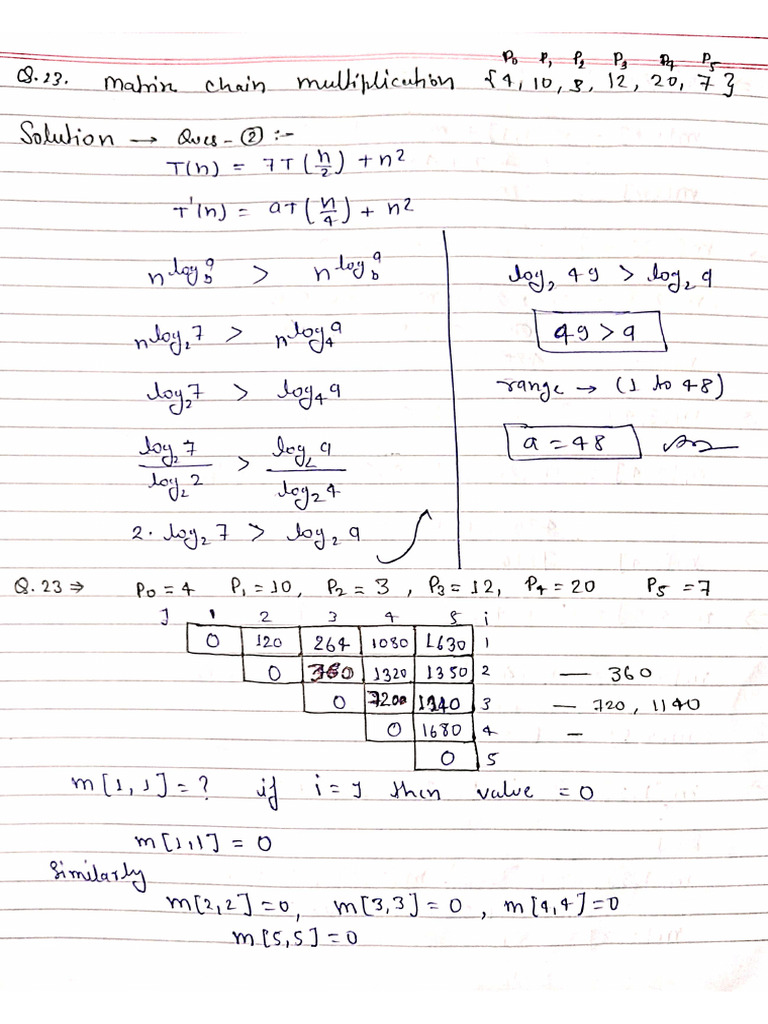 P0 P1 P2 P3 P4 P5
Q.23. Matrix chain multiplication {4, 10, 3, 12, 20, 7}
Solution → Ques - ② :-
T(n) = 7T(n/2) + n²
T'(n) = aT(n/4) + n²
n^log_b a > n^log_b a
n^log_2 7 > n^log_4 a
log_2 7 > log_4 a
log_2 7 / log_2 2 > log_2 a / log_2 4
2. log_2 7 > log_2 a
log_2 49 > log_2 a
49 > a
range → (1 to 48)
a = 48 Ans
Q.23 ⇒ P0 = 4 P1 = 10, P2 = 3, P3 = 12, P4 = 20 P5 = 7
J 1 2 3 4 5 i
0 120 264 1080 1630 1
0 360 1320 1350 2 — 360
0 720 1140 3 — 720, 1140
0 1680 4 –
0 5
m[1,1] = ? if i = J then value = 0
m[1,1] = 0
Similarly
m[2,2] = 0, m[3,3] = 0, m[4,4] = 0
m[5,5] = 0